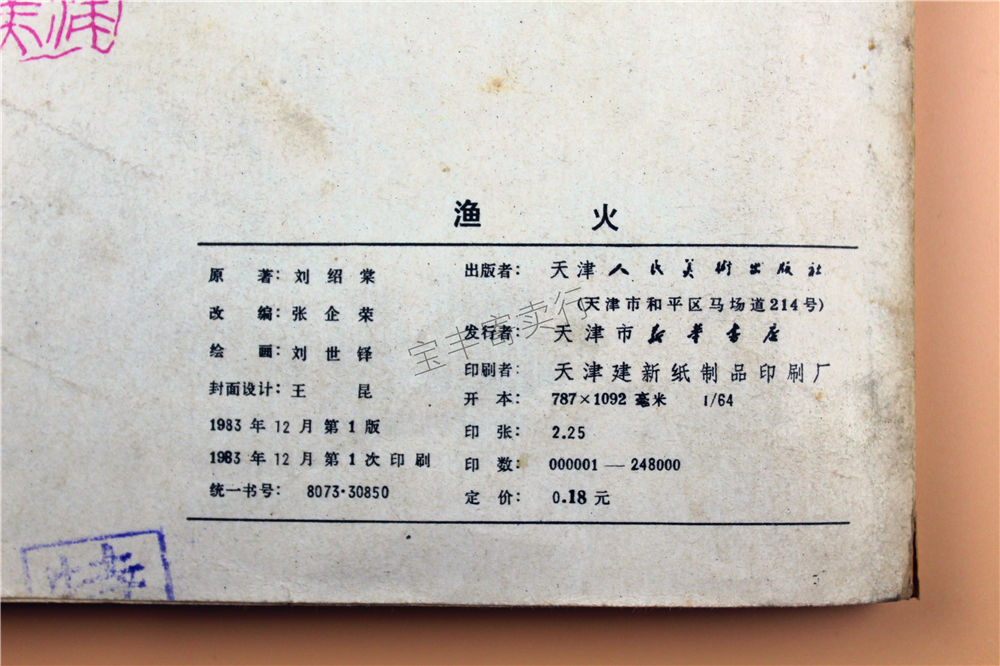 渔 火
原 著：刘 绍 棠
改 编：张 企 荣
绘 画：刘 世 铎
封面设计：王 昆
1983 年 12 月 第 1 版
1983 年 12 月 第 1 次 印 刷
统一书号： 8073·30850
出版者： 天津人民美術出版社
(天津市和平区马场道214号)
发行者： 天津市新華書店
印刷者： 天津建新纸制品印刷厂
开 本： 787×1092 毫米 1/64
印 张： 2.25
印 数： 000001—248000
定 价： 0.18 元
宝丰寄卖行